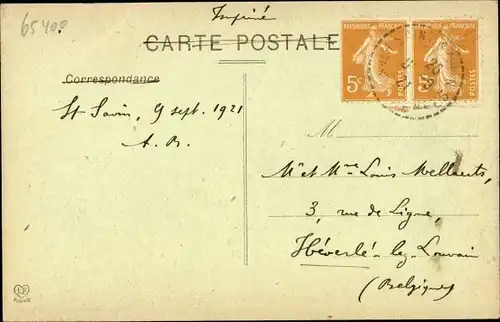 65400
Imprimé
CARTE POSTALE
Correspondance
St Savin, 9 sept. 1921
A. B.
RÉPUBLIQUE FRANÇAISE
5c POSTES
RÉPUBLIQUE FRANÇAISE
5c POSTES
M
Mr et Mme Louis Mellaerts,
3, rue de Ligne,
Héverlé-lez-Louvain
(Belgique)